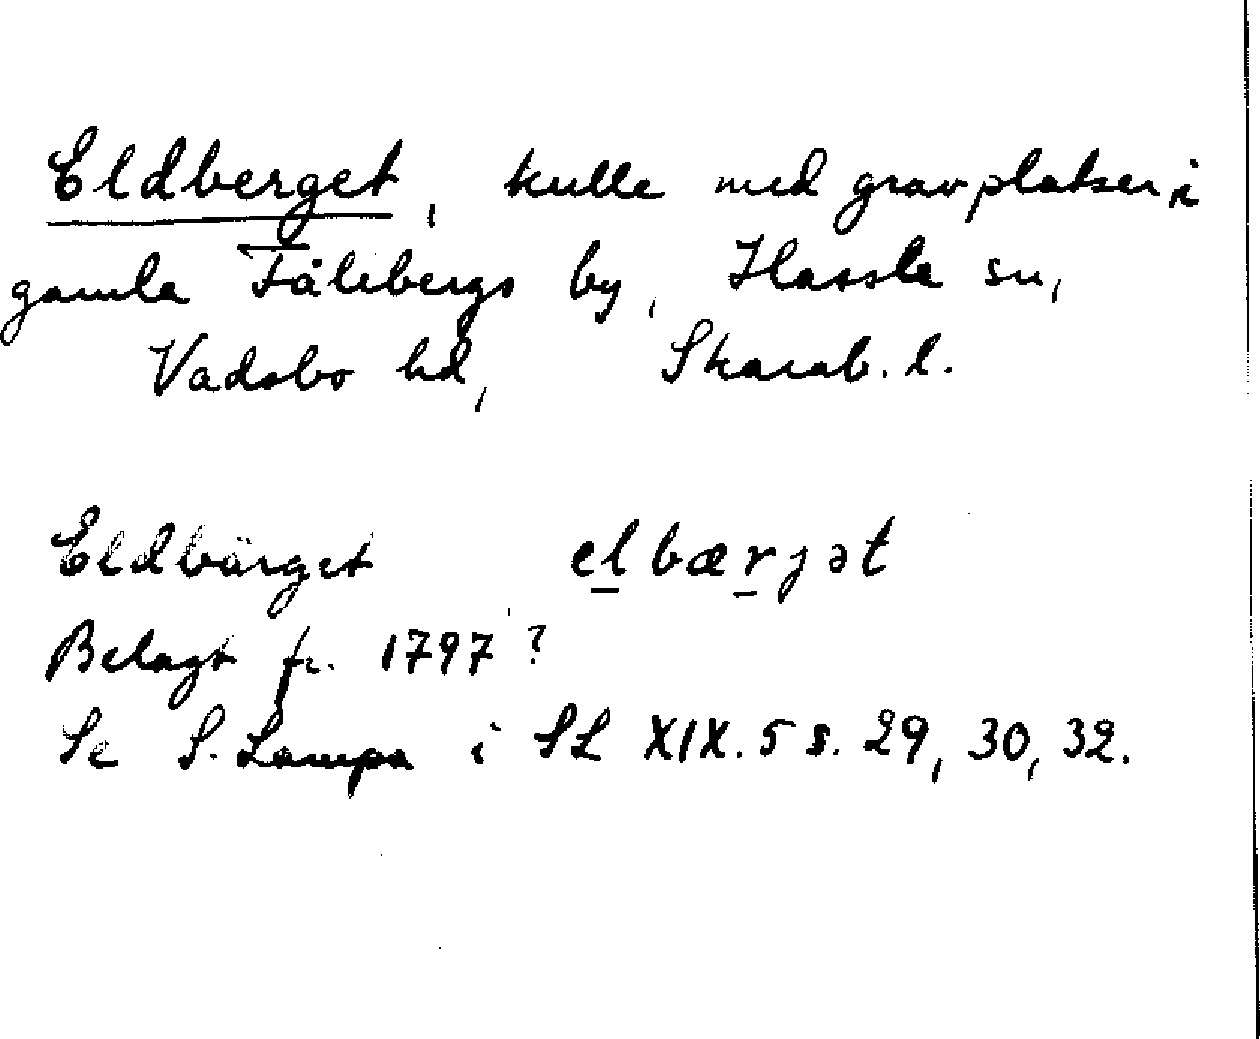 Eldberget, kulle med gravplatser i
gamla Fålebergs by, Hassle sn,
Vadsbo hd, Skarab. l.
Eldbärget elbærjət
Belagt fr. 1797?
Se S. Lampa i SL XIX. 5 s. 29, 30, 32.